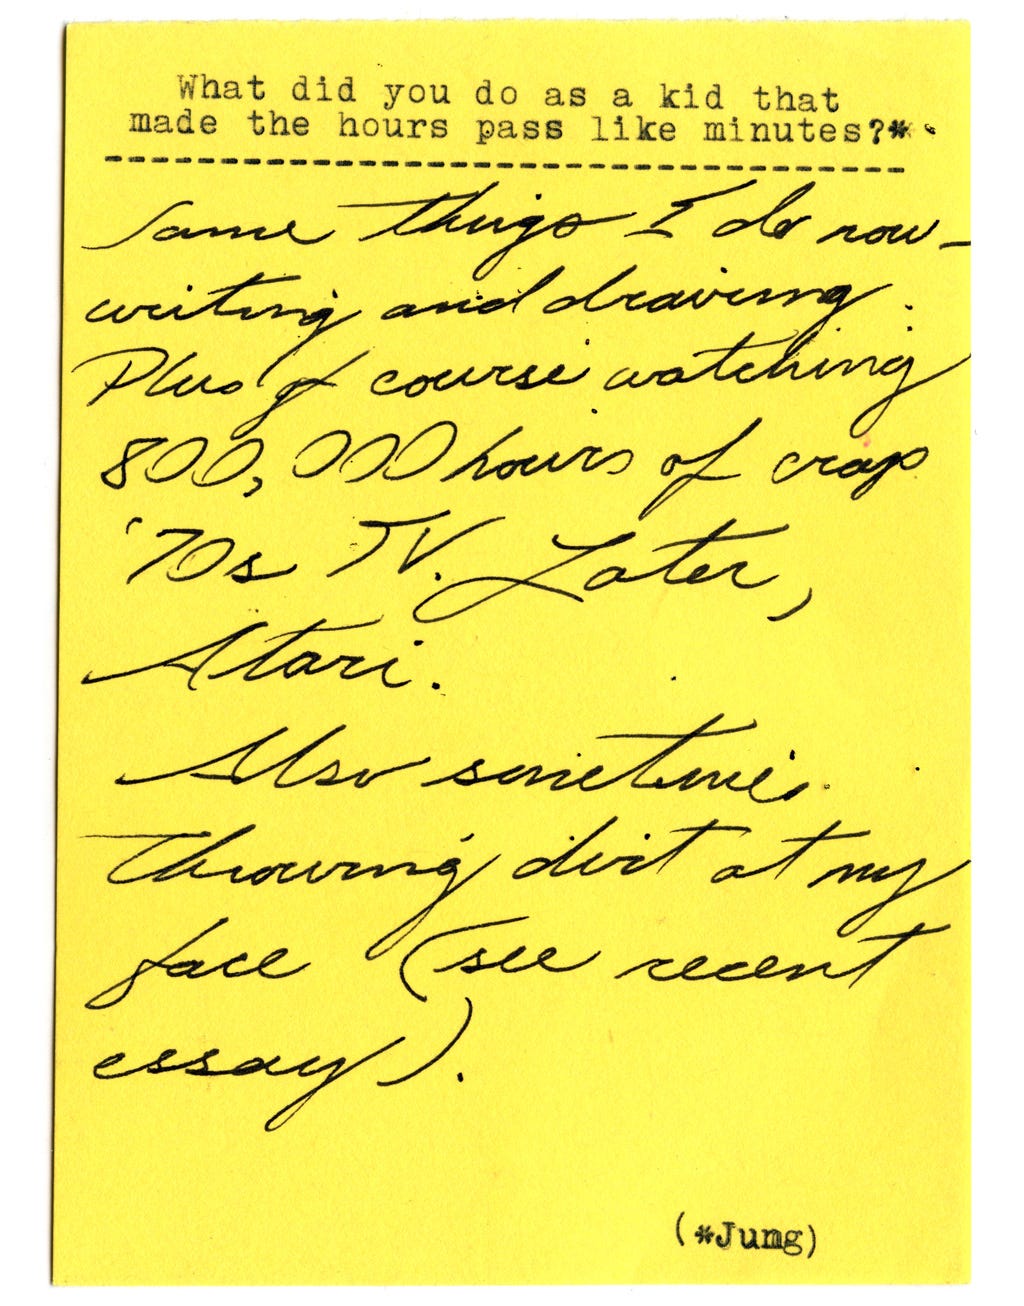 What did you do as a kid that
made the hours pass like minutes?*
Same things I do now -
writing and drawing.
Plus of course watching
800,000 hours of crap
'70s TV. Later,
Atari.
Also sometimes
throwing dirt at my
face (see recent
essay).
(*Jung)